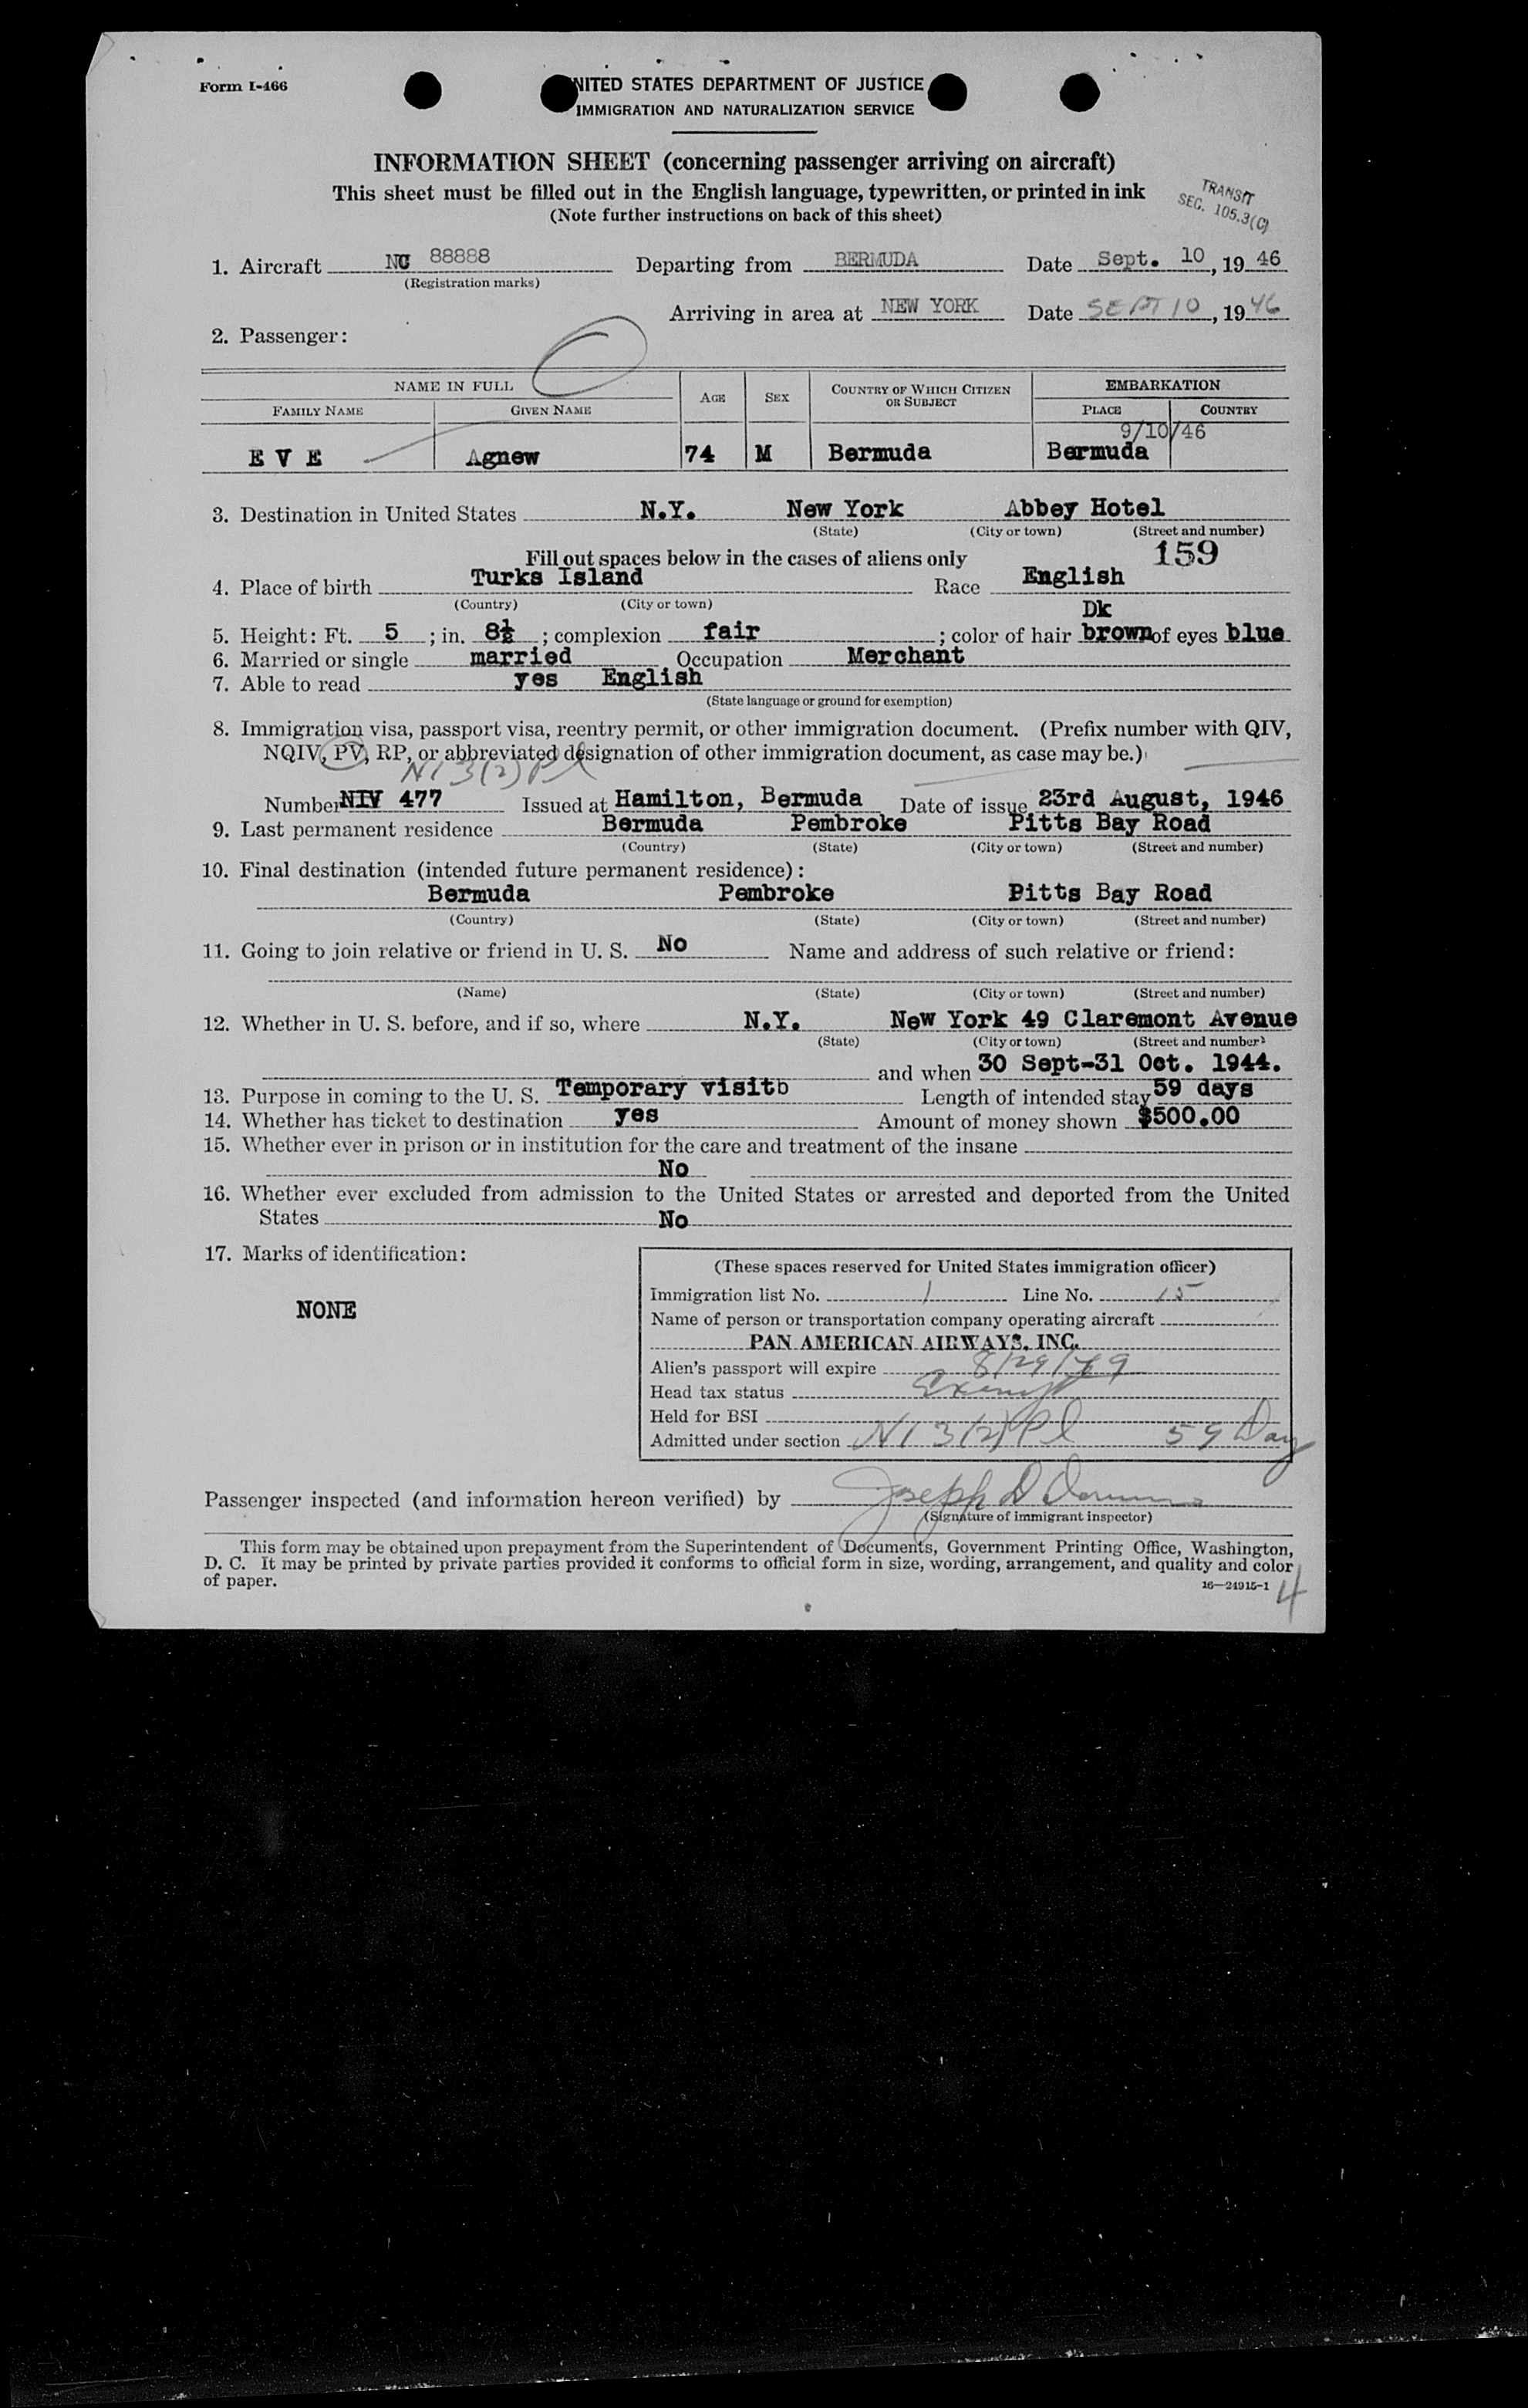 Form I-466
UNITED STATES DEPARTMENT OF JUSTICE
IMMIGRATION AND NATURALIZATION SERVICE
INFORMATION SHEET (concerning passenger arriving on aircraft)
This sheet must be filled out in the English language, typewritten, or printed in ink
(Note further instructions on back of this sheet)
TRANSIT
SEC. 105.3(C)
1. Aircraft NC 88888 Departing from BERMUDA Date Sept. 10, 1946
(Registration marks)
Arriving in area at NEW YORK Date SEPT 10, 1946
2. Passenger:
NAME IN FULL AGE SEX COUNTRY OF WHICH CITIZEN OR SUBJECT EMBARKATION
FAMILY NAME GIVEN NAME PLACE COUNTRY
9/10/46
EVE Agnew 74 M Bermuda Bermuda
3. Destination in United States N.Y. New York Abbey Hotel
(State) (City or town) (Street and number)
Fill out spaces below in the cases of aliens only 159
4. Place of birth Turks Island Race English
(Country) (City or town)
Dk
5. Height: Ft. 5; in. 8½; complexion fair; color of hair brown of eyes blue
6. Married or single married Occupation Merchant
7. Able to read yes English
(State language or ground for exemption)
8. Immigration visa, passport visa, reentry permit, or other immigration document. (Prefix number with QIV,
NQIV, PV, RP, or abbreviated designation of other immigration document, as case may be.)
N1 3(2) Pl
Number NIV 477 Issued at Hamilton, Bermuda Date of issue 23rd August, 1946
9. Last permanent residence Bermuda Pembroke Pitts Bay Road
(Country) (State) (City or town) (Street and number)
10. Final destination (intended future permanent residence):
Bermuda Pembroke Pitts Bay Road
(Country) (State) (City or town) (Street and number)
11. Going to join relative or friend in U. S. No Name and address of such relative or friend:
(Name) (State) (City or town) (Street and number)
12. Whether in U. S. before, and if so, where N.Y. New York 49 Claremont Avenue
(State) (City or town) (Street and number)
and when 30 Sept-31 Oct. 1944.
13. Purpose in coming to the U. S. Temporary visitb Length of intended stay 59 days
14. Whether has ticket to destination yes Amount of money shown $500.00
15. Whether ever in prison or in institution for the care and treatment of the insane
No
16. Whether ever excluded from admission to the United States or arrested and deported from the United
States No
17. Marks of identification:
NONE
(These spaces reserved for United States immigration officer)
Immigration list No. 1 Line No. 15
Name of person or transportation company operating aircraft
PAN AMERICAN AIRWAYS, INC.
Alien's passport will expire 8/29/49
Head tax status Exempt
Held for BSI
Admitted under section N1 3(2) Pl 59 Day
Passenger inspected (and information hereon verified) by Joseph D
(Signature of immigrant inspector)
This form may be obtained upon prepayment from the Superintendent of Documents, Government Printing Office, Washington,
D. C. It may be printed by private parties provided it conforms to official form in size, wording, arrangement, and quality and color
of paper.
16—24915-1 4